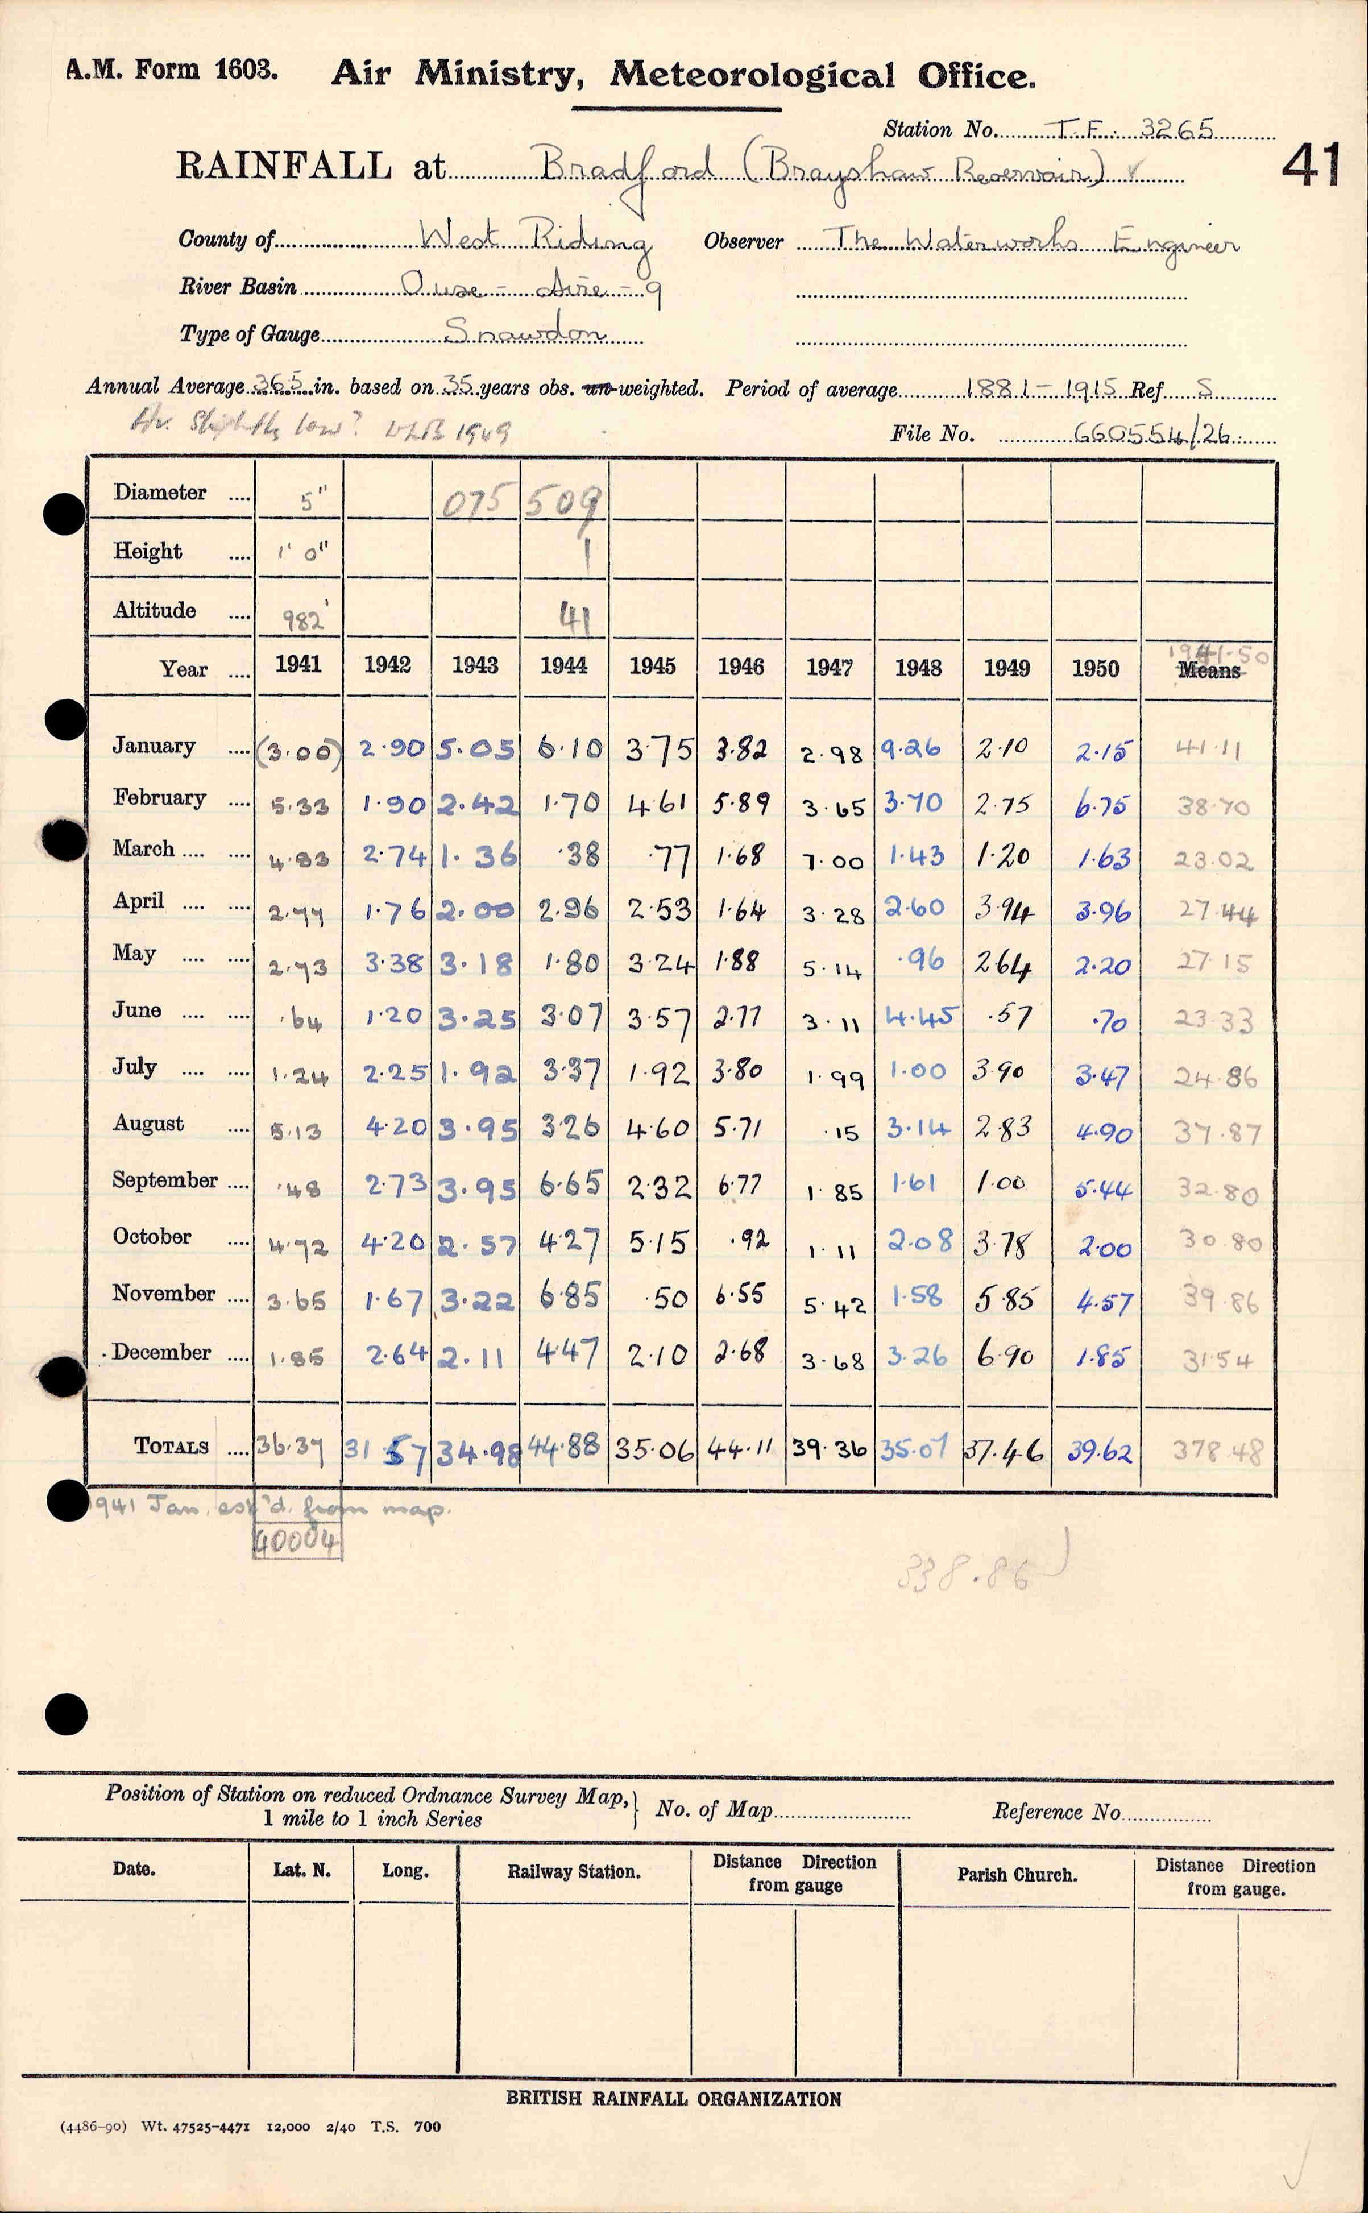 A.M. Form 1603. Air Ministry, Meteorological Office.
Station No. T.F. 3265
RAINFALL at Bradford (Brayshaw Reservoir) ✓ 41
County of West Riding Observer The Waterworks Engineer
River Basin Ouse - Aire - 9
Type of Gauge Snowdon
Annual Average 36.5 in. based on 35 years obs. un-weighted. Period of average 1881 - 1915 Ref S
Av. Slightly low? 1949
File No. 660554/26
Diameter .... 5" 075 509
Height .... 1' 0" 1
Altitude .... 982' 41
Year .... 1941 1942 1943 1944 1945 1946 1947 1948 1949 1950 1941-50 Means
January .... (3.00) 2.90 5.05 6.10 3.75 3.82 2.98 9.26 2.10 2.15 41.11
February .... 5.33 1.90 2.42 1.70 4.61 5.89 3.65 3.70 2.75 6.75 38.70
March .... .... 4.83 2.74 1.36 .38 .77 1.68 7.00 1.43 1.20 1.63 23.02
April .... .... 2.77 1.76 2.00 2.96 2.53 1.64 3.28 2.60 3.94 3.96 27.44
May .... .... 2.73 3.38 3.18 1.80 3.24 1.88 5.14 .96 2.64 2.20 27.15
June .... .... .64 1.20 3.25 3.07 3.57 2.77 3.11 4.45 .57 .70 23.33
July .... .... 1.24 2.25 1.92 3.37 1.92 3.80 1.99 1.00 3.90 3.47 24.86
August .... 5.13 4.20 3.95 3.26 4.60 5.71 .15 3.14 2.83 4.90 37.87
September .... .48 2.73 3.95 6.65 2.32 6.77 1.85 1.61 1.00 5.44 32.80
October .... 4.72 4.20 2.57 4.27 5.15 .92 1.11 2.08 3.78 2.00 30.80
November .... 3.65 1.67 3.22 6.85 .50 6.55 5.42 1.58 5.85 4.57 39.86
December .... 1.85 2.64 2.11 4.47 2.10 2.68 3.68 3.26 6.90 1.85 31.54
TOTALS .... 36.37 31.57 34.98 44.88 35.06 44.11 39.36 35.07 37.46 39.62 378.48
1941 Jan. est'd. from map.
40004
338.86
Position of Station on reduced Ordnance Survey Map, 1 mile to 1 inch Series } No. of Map Reference No.
Date. Lat. N. Long. Railway Station. Distance Direction from gauge Parish Church. Distance Direction from gauge.
BRITISH RAINFALL ORGANIZATION
(4486-90) Wt. 47525-4471 12,000 2/40 T.S. 700